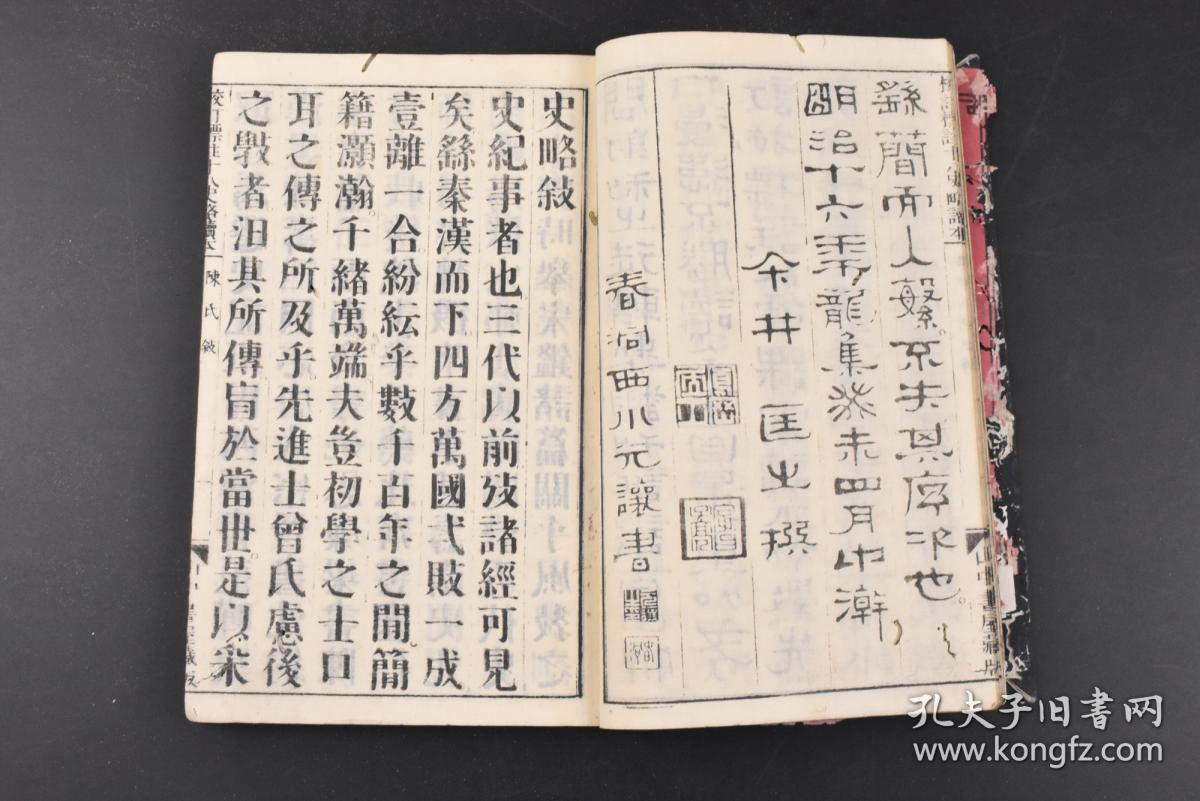 繇簡而人繁亦失其序次也
明治十六年龍集癸未四月中澣
今井匡之撰
春洞西川元讓書
史略敘
史紀事者也三代㕥前攷諸經可見
矣繇秦漢而下四方萬國弌敗一成
壹離一合紛紜乎數千百年之閒簡
籍灝瀚千緒萬端夫豈初學之士口
耳之傳之所及乎先進士曾氏慮後
之斅者汨其所傳盲於當世是㕥采
校訂標註十八史略讀本
陳氏敘
孔夫子旧书网
www.kongfz.com